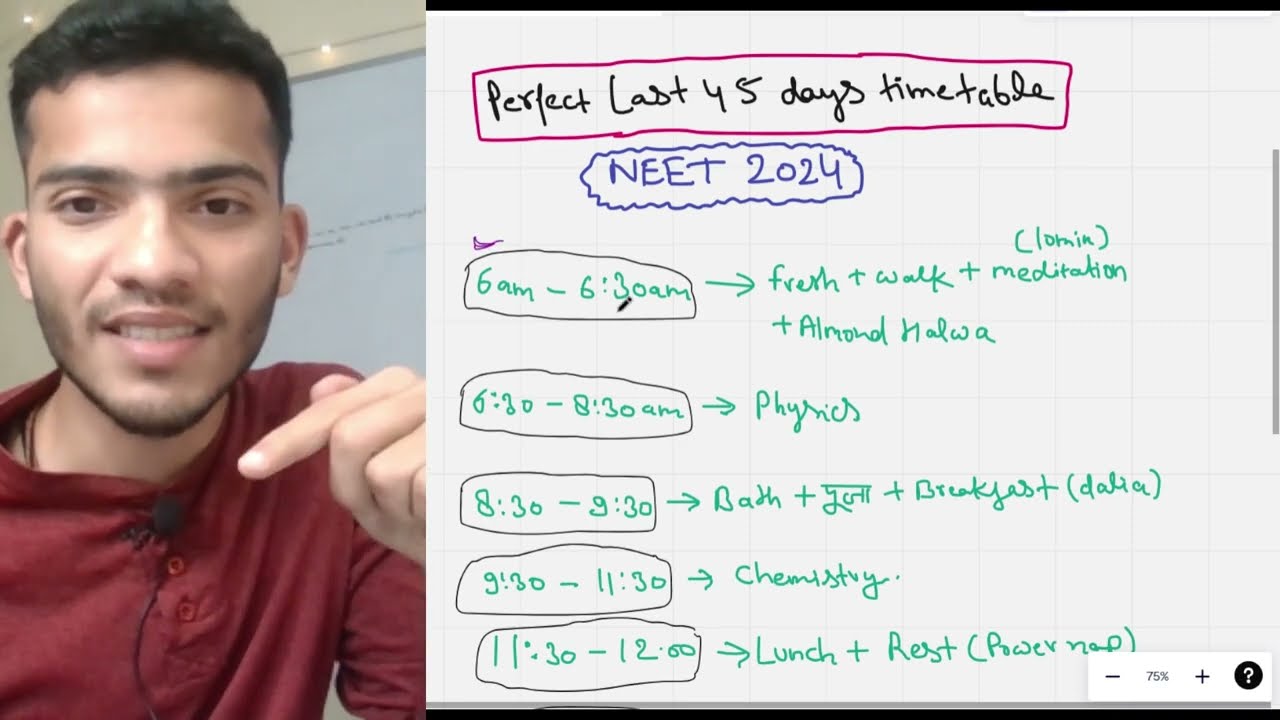 Perfect Last 45 days timetable
NEET 2024
(10min)
6am - 6:30am → fresh + walk + meditation
+ Almond Halwa
6:30 - 8:30am → Physics
8:30 - 9:30 → Bath + पूजा + Breakfast (dalia)
9:30 - 11:30 → Chemistry.
11:30 - 12:00 → Lunch + Rest (Power nap)
− 75% + ?